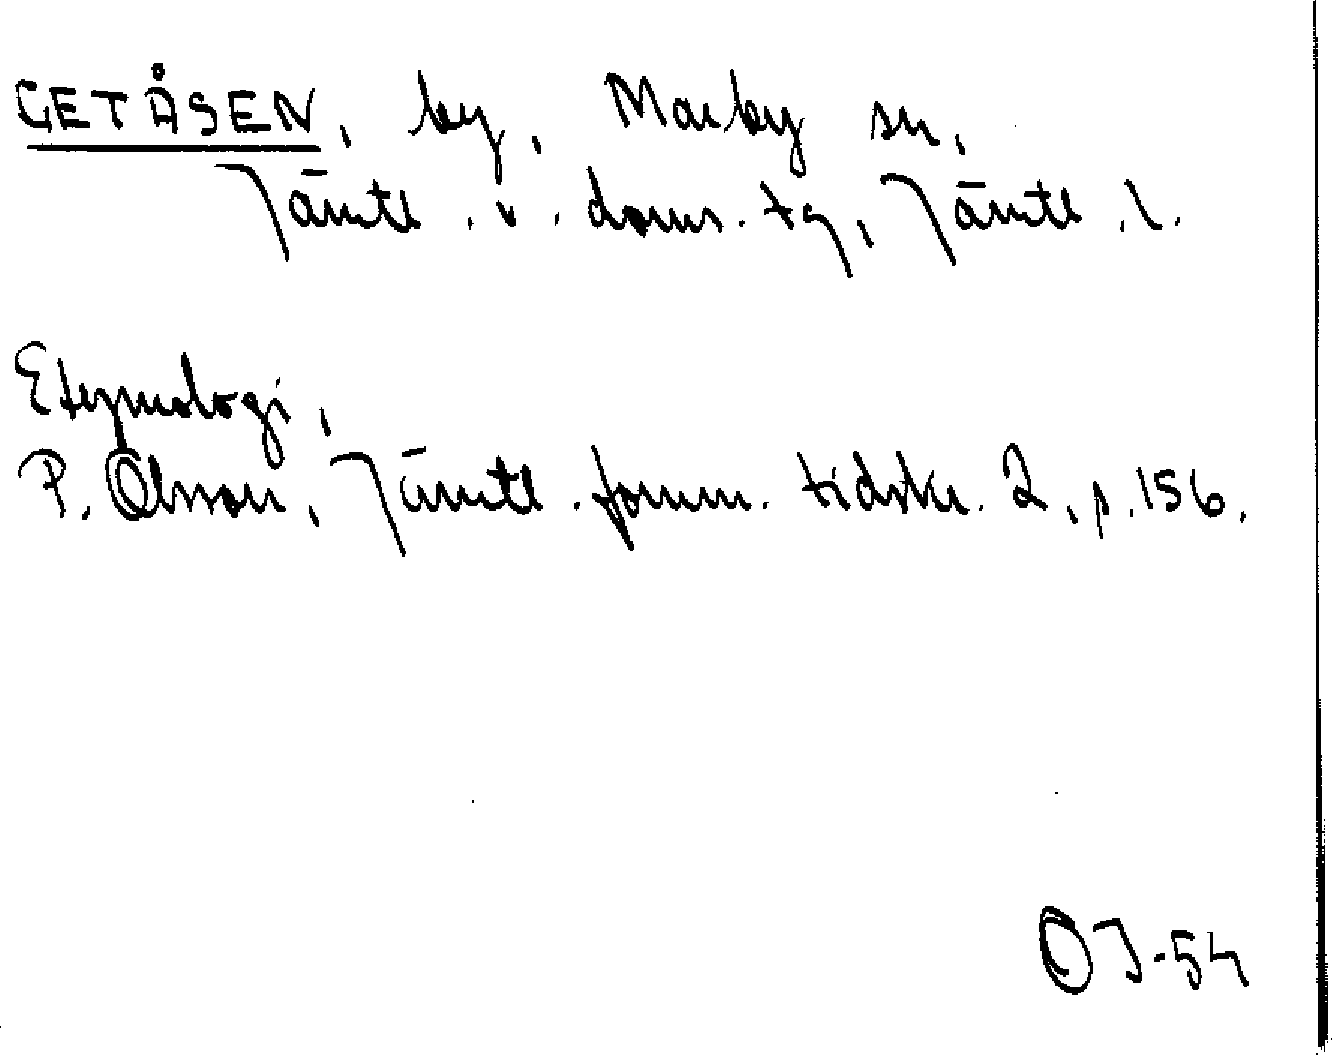 GETÅSEN, by, Marby sn,
Jämtl. v. doms. tg, Jämtl. l.
Etymologi,
P. Olsson, Jämtl. fornm. tidskr. 2, p. 156.
OJ-54